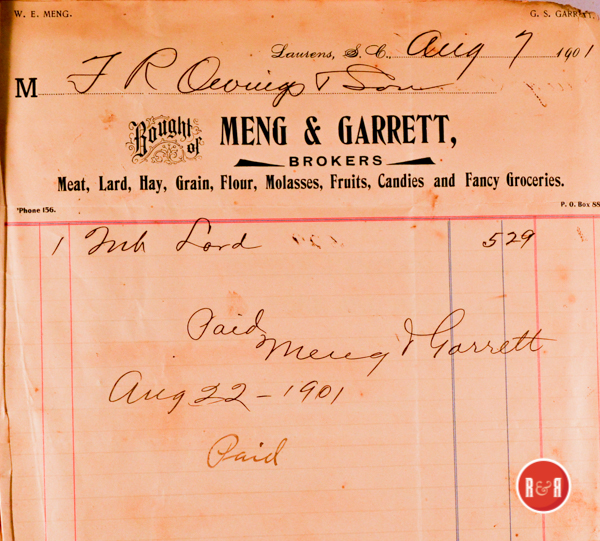 W. E. MENG. G. S. GARRETT.
Laurens, S. C., Aug 7 1901
M F R Owings & Son
Bought of MENG & GARRETT,
BROKERS
Meat, Lard, Hay, Grain, Flour, Molasses, Fruits, Candies and Fancy Groceries.
'Phone 156. P. O. Box 88
1 Tub Lard 5 29
Paid
Meng & Garrett
Aug 22 - 1901
Paid
R&R